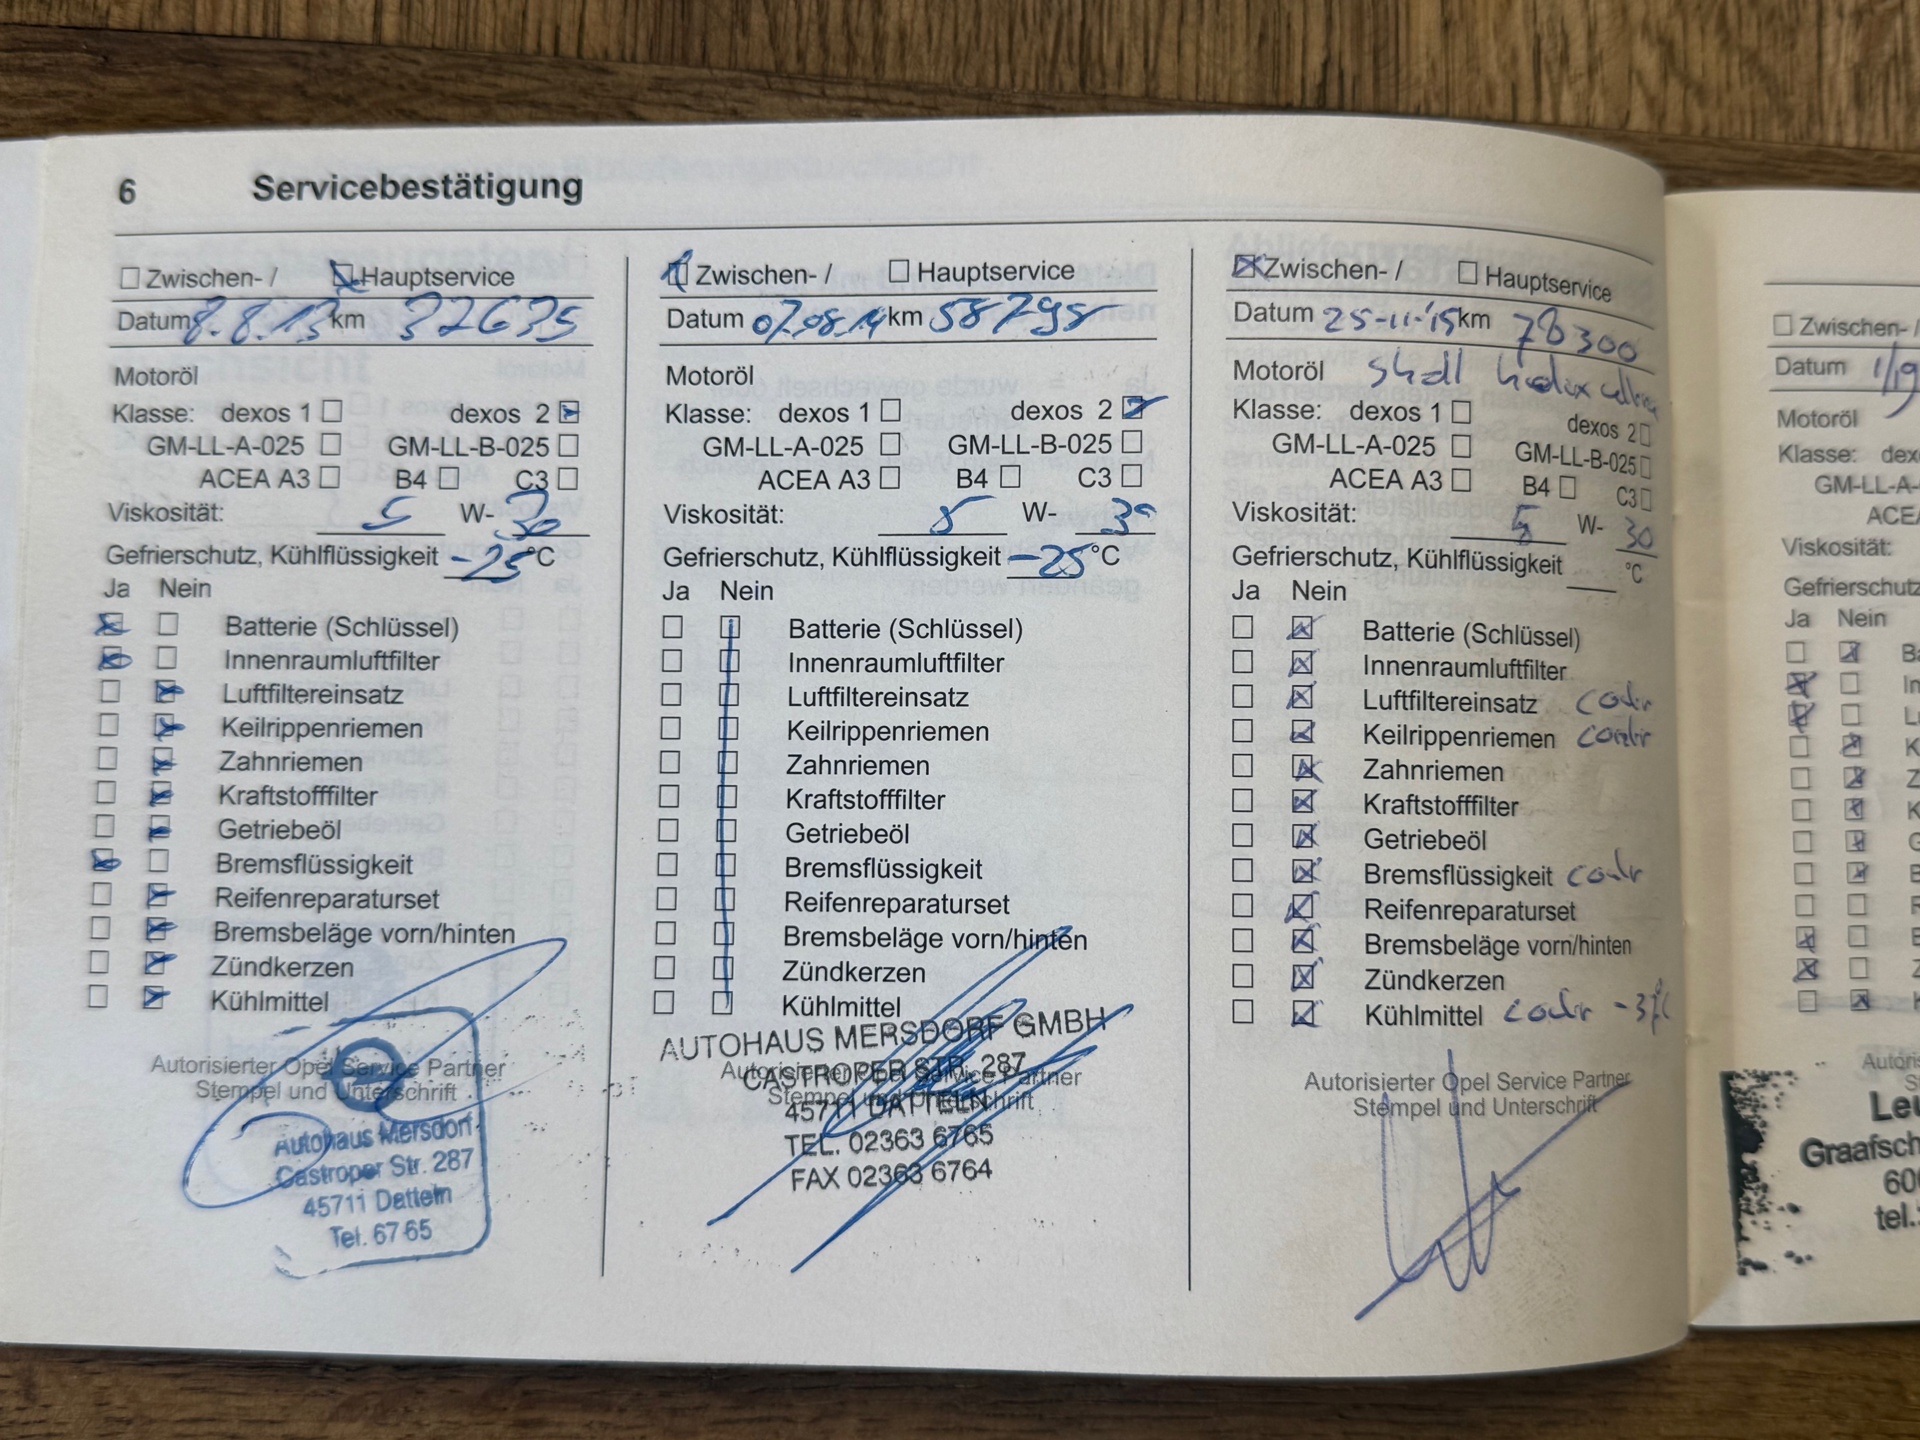 6 Servicebestätigung
Zwischen- / Hauptservice
Datum 8.8.13 km 32635
Motoröl
Klasse: dexos 1 dexos 2
GM-LL-A-025 GM-LL-B-025
ACEA A3 B4 C3
Viskosität: 5 W- 30
Gefrierschutz, Kühlflüssigkeit -25 °C
Ja Nein
Batterie (Schlüssel)
Innenraumluftfilter
Luftfiltereinsatz
Keilrippenriemen
Zahnriemen
Kraftstofffilter
Getriebeöl
Bremsflüssigkeit
Reifenreparaturset
Bremsbeläge vorn/hinten
Zündkerzen
Kühlmittel
Autorisierter Opel Service Partner
Stempel und Unterschrift
Autohaus Mersdorf
Castroper Str. 287
45711 Datteln
Tel. 67 65
Zwischen- / Hauptservice
Datum 07.08.14 km 58795
Motoröl
Klasse: dexos 1 dexos 2
GM-LL-A-025 GM-LL-B-025
ACEA A3 B4 C3
Viskosität: 5 W- 30
Gefrierschutz, Kühlflüssigkeit -25 °C
Ja Nein
Batterie (Schlüssel)
Innenraumluftfilter
Luftfiltereinsatz
Keilrippenriemen
Zahnriemen
Kraftstofffilter
Getriebeöl
Bremsflüssigkeit
Reifenreparaturset
Bremsbeläge vorn/hinten
Zündkerzen
Kühlmittel
AUTOHAUS MERSDORF GMBH
Autorisierter Opel Service Partner
CASTROPER STR. 287
Stempel und Unterschrift
45711 DATTELN
TEL. 02363 6765
FAX 02363 6764
Zwischen- / Hauptservice
Datum 25-11-'15 km 78300
Motoröl Shell Helix
Klasse: dexos 1 dexos 2
GM-LL-A-025 GM-LL-B-025
ACEA A3 B4 C3
Viskosität: 5 W- 30
Gefrierschutz, Kühlflüssigkeit °C
Ja Nein
Batterie (Schlüssel)
Innenraumluftfilter
Luftfiltereinsatz
Keilrippenriemen
Zahnriemen
Kraftstofffilter
Getriebeöl
Bremsflüssigkeit
Reifenreparaturset
Bremsbeläge vorn/hinten
Zündkerzen
Kühlmittel
Autorisierter Opel Service Partner
Stempel und Unterschrift
Zwischen- /
Datum
Motoröl
Klasse:
Viskosität:
Ja Nein